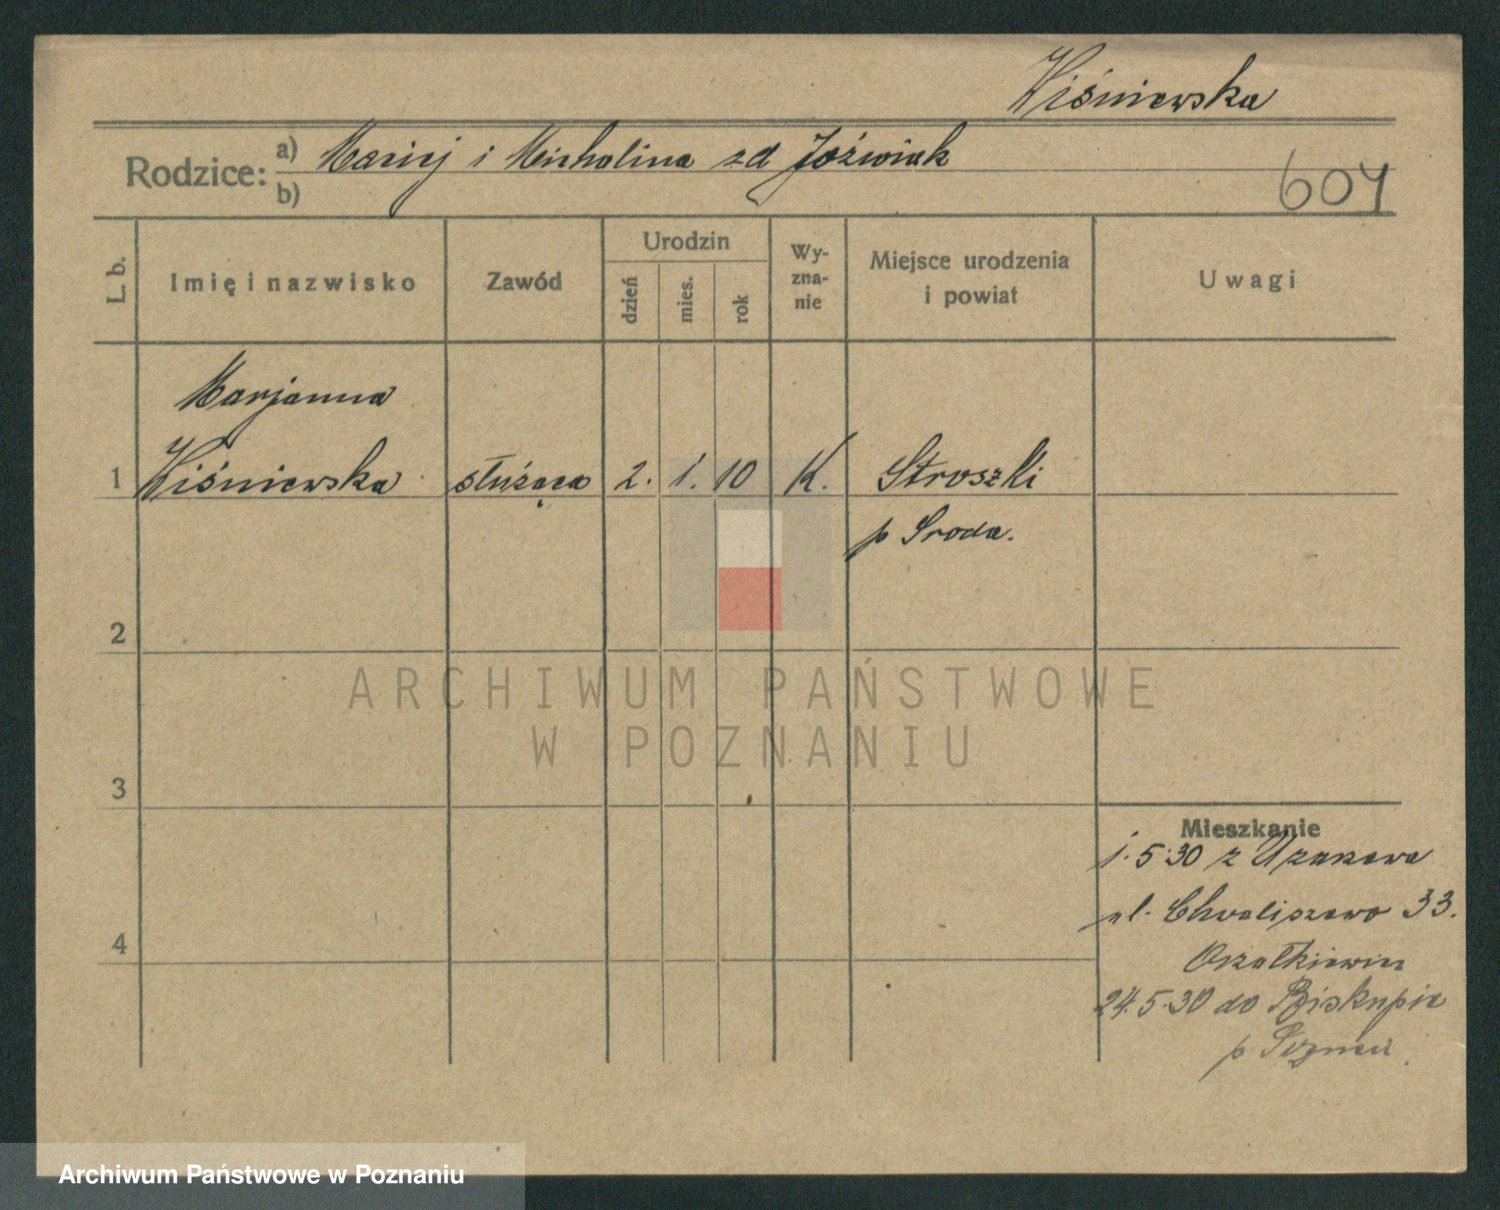 Wiśniewska
Rodzice: a) Maciej i Michalina zd Jóźwiak
b)
607
L. b.
Imię i nazwisko
Zawód
Urodzin
dzień
mies.
rok
Wy-
zna-
nie
Miejsce urodzenia
i powiat
Uwagi
Marjanna
1 Wiśniewska służąca 2. 1. 10 K. Stroszki
p Sroda.
2
3
4
Mieszkanie
1.5.30 z
ul. Chwaliszewo 33.
24.5.30 do Biskupic
p
ARCHIWUM PAŃSTWOWE
W POZNANIU
Archiwum Państwowe w Poznaniu